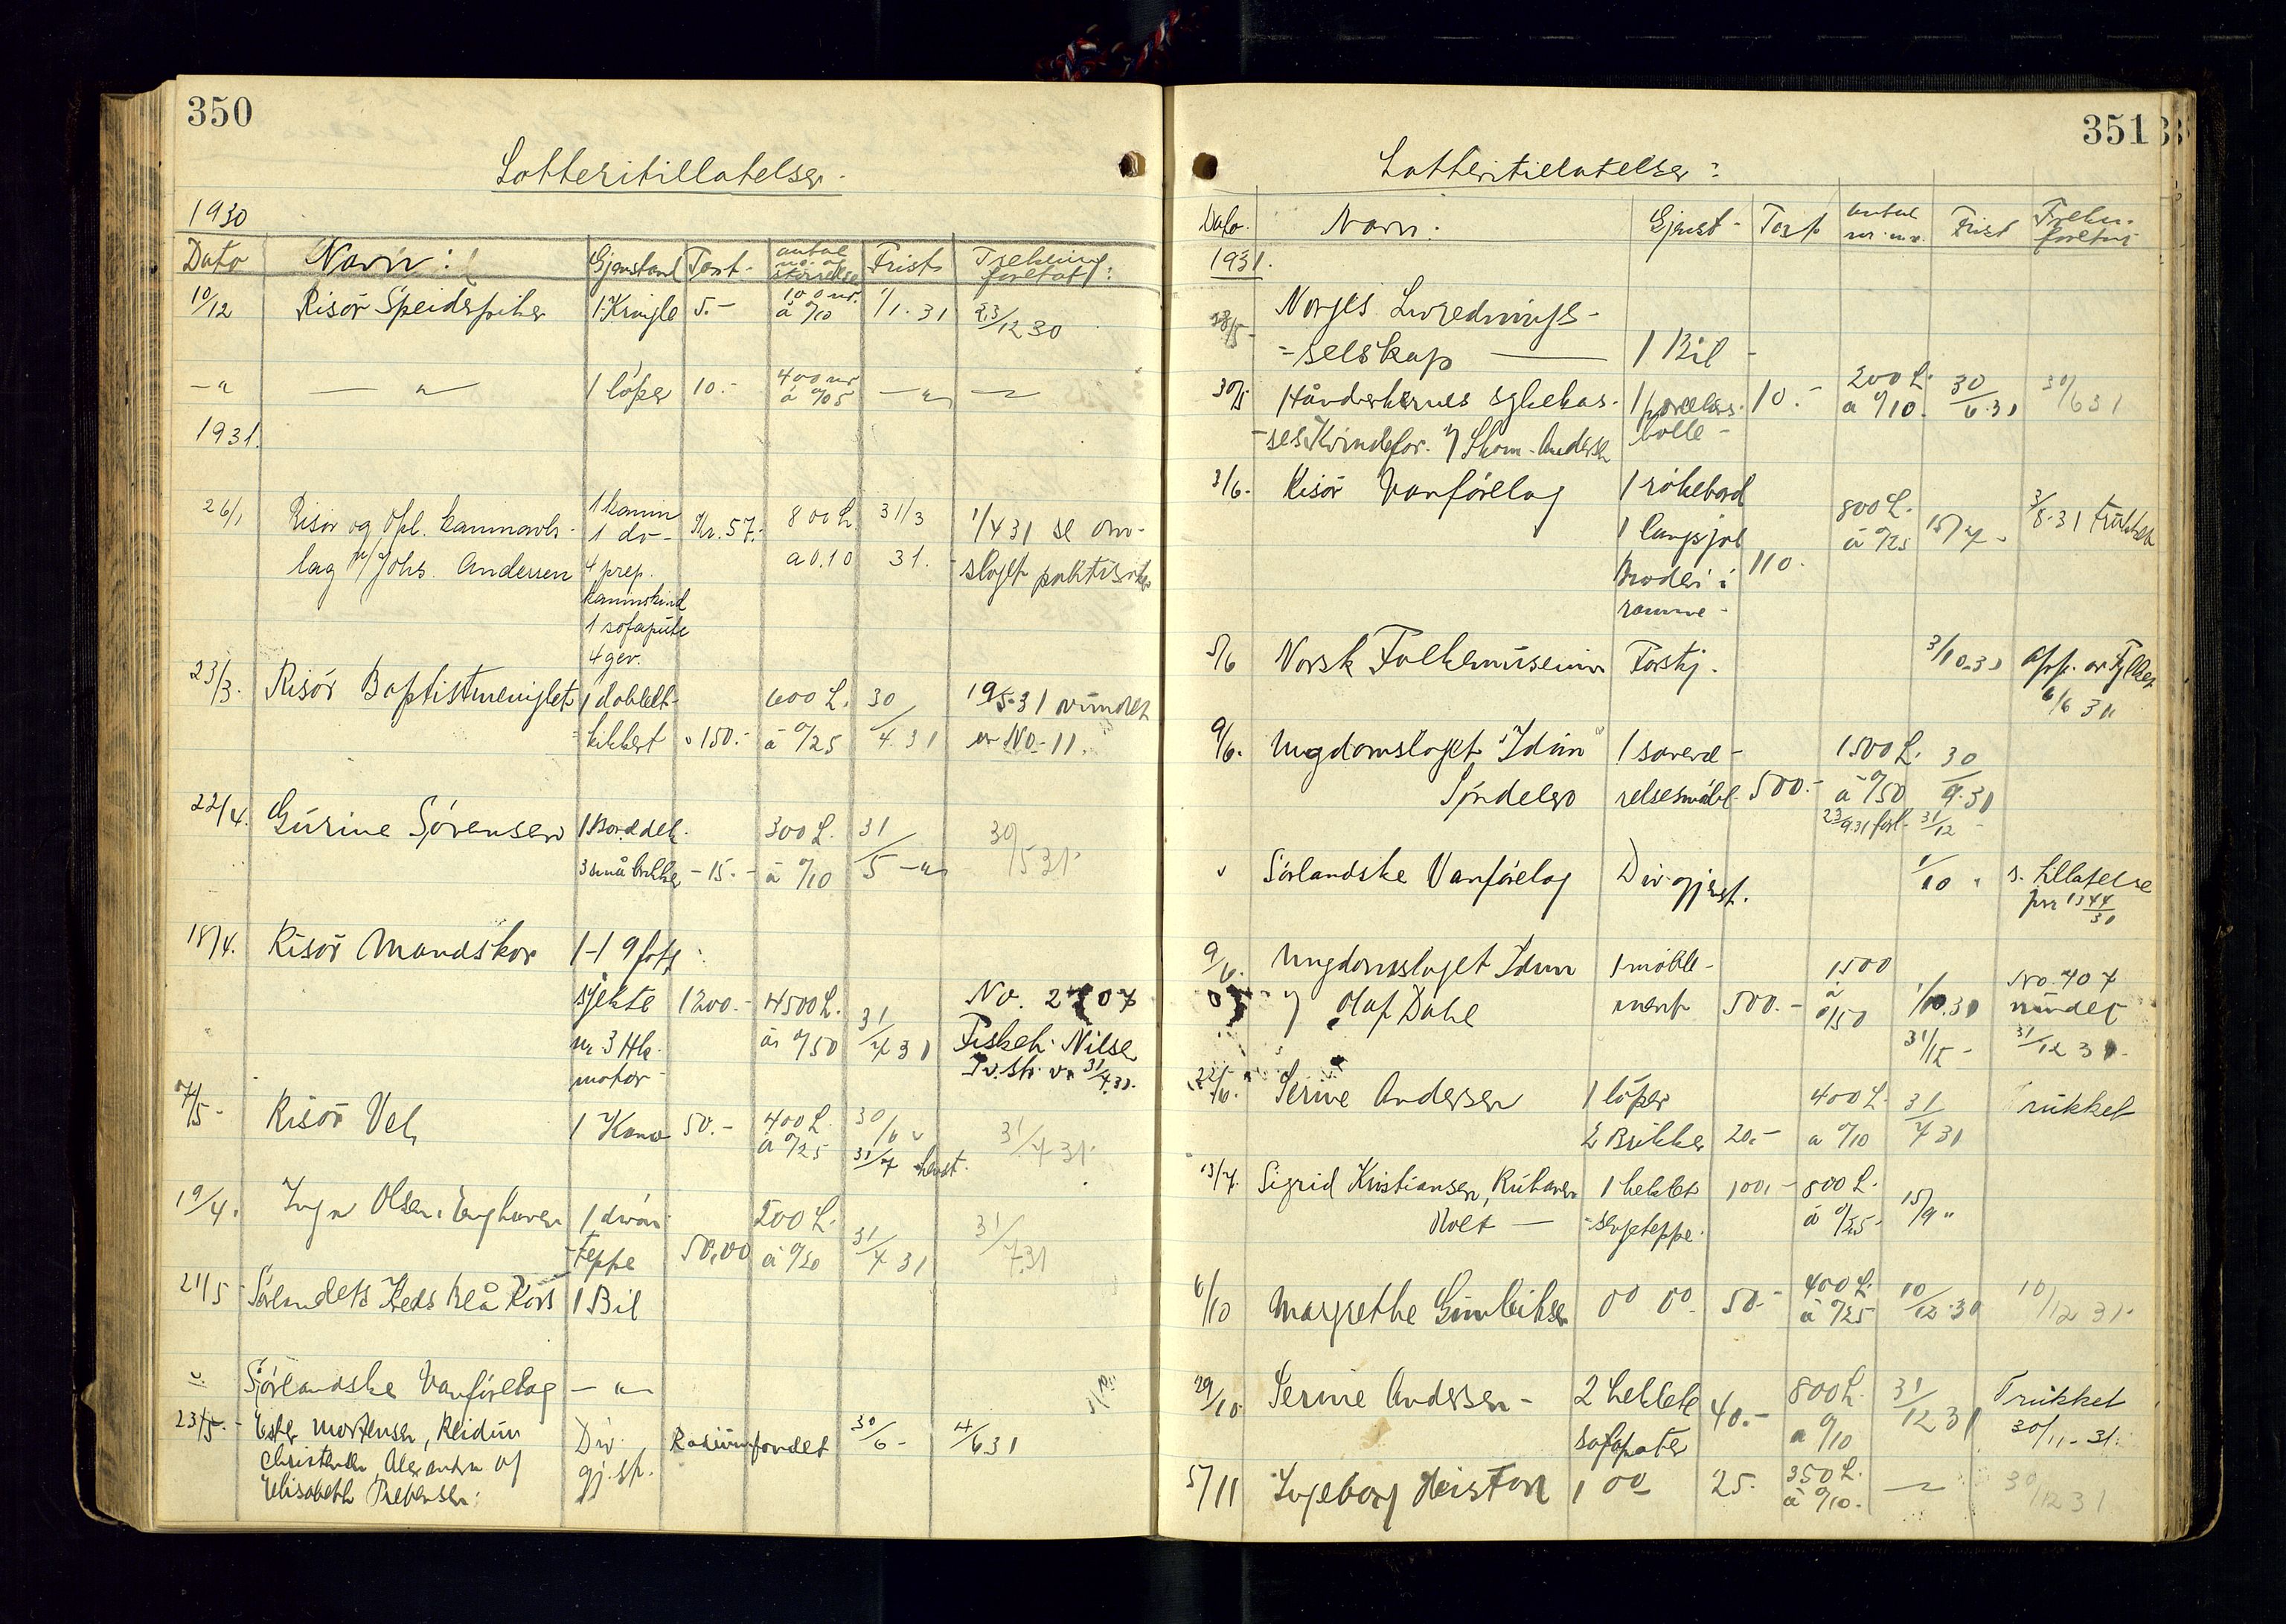 350
Lotteritillatelser.
1930
Dato Navn: Gjenstand Takst. antal no. og størrelse Frist Trekning foretat:
10/12 Risör Speiderpiker 1 Kringle 5.- 100 nr. à 0/10 1/1.31 23/12 30
-"- -"- 1 löper 10.- 400 nr à 0/05 -"-
1931.
26/1 Risör og Opl. kaninavls- 1 kanin Kr. 57.- 800 L. 31/3 1/4 31 se om-
lag v/ Johs. Andersen 1 do- a 0.10 31. slaget
4 prep.
kaninskind
1 sofapute
4 gev.
23/3. Risör Baptistmenighet 1 dobbelt- 600 L. 30 19/5-31 vundet
kikkert 150.- à 0/25 4.31 av No. 11.
22/4. Gurine Sörensen 1 Borddek. 300 L. 31 30/5 31.
3 små brikker - 15.- à 0/10 5 -"-
18/4. Risör Mandskor 1-19 fots
sjekte 1200.- 4500 L. 31 No. 2707
m 3 Hk. à 0/50 7 31 Fiskeh. Nilsen
motor
7/5- Risör Vel 1 Kano 50.- 400 L. à 0/25 30/6 " 31/7 31.
31/7
19/4. Inga Olsen, Enghaven 1 divan- 200 L.
teppe 50,00 à 0/50 31/7 31 31/7.31
21/5 Sörlandets Kreds Blå Kors 1 Bil
". Sjörlandske Vanförelag -"-
23/5.- Ester Mortensen, Reidun Div. Radiumfondet 30/6- 4/6 31
Christensen Alexandra og gj.st.
Elisabeth Prebensen.
351
Lotteritillatelser:
Dato. Navn: Gjenst- Takst antal nr. Frist Trekn. foretat
1931.
28/5- Norges Livrednings-
=selskap 1 Bil -
30/5 Håndverkernes sykekas- 1 porcelæns- 10.- 200 L. à 0/10. 30/6.31 30/6 31
-ses Kvindefor. v/ Thom. Andersen bolle-
3/6. Risör Vanförelag 1 rökebord
1 lampe 800 L. à 0/25 15/7- 3/8.31 trukket
Broderi i 110.
ramme-
5/6 Norsk Folkemuseum Forskj. 3/10.31 opp. av Fylket
6/6 31
9/6. Ungdomslaget "Idun" 1 soveværelsesmöbl. 1500 L. 30
Söndeled 500.- à 0/50 9.31
23/9.31 forl. 31/12-
" Sörlandske Vanförelag Div gjenst. 1/10 " s. tillatelse
jnr 1344/31
9/6. Ungdomslaget Idun 1 möble- 1500 No. 407
v/ Olaf Dahl ment 500.- à 0/50 1/10.31 vundet
31/12- 31/12 31.
22/6. Serine Andersen 1 löper 400 L. 31 Trukket
2 Brikker 20.- a 0/10 7 31
13/7. Sigrid Kristiansen, 1 heklet 100.- 800 L. 15/9 "
Holt - sengeteppe. à 0/25-
6/10 Margrethe Gundersen 00 00. 50.- 400 L. à 0/25 10/12.30 10/12 31.
29/10 Serine Andersen - 2 heklete 40.- 800 L. 31/12 31 Trukket
sofaputer a 0/10 30/11-31.
5/11 Ingeborg 1 00 25. 350 L. à 0/10. -"- 30/12 31